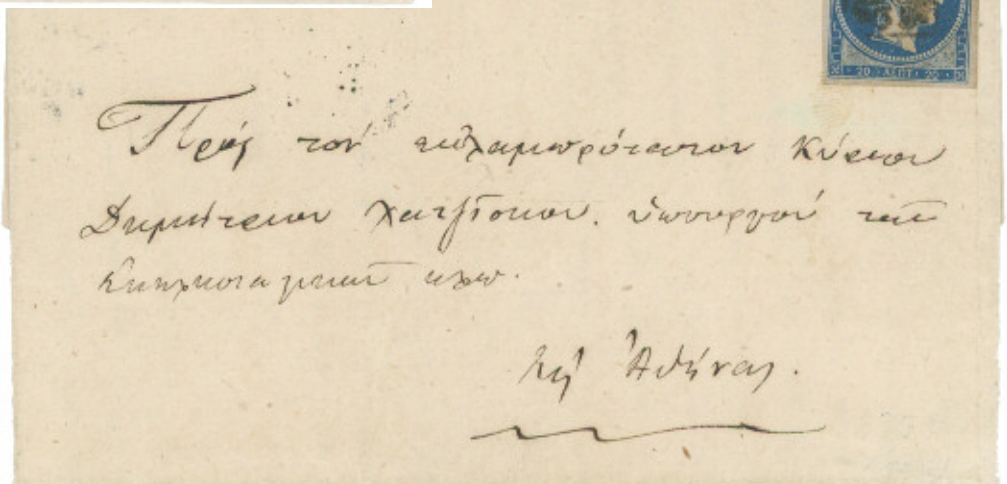 20 ΛΕΠΤ. 20
Πρὸς τὸν ἐκλαμπρότατον Κύριον
Δημήτριον Χατζίσκον. ὑπουργὸν τῶν
Ἐκκλησιαστικῶν κλπ.
Εἰς Ἀθήνας.